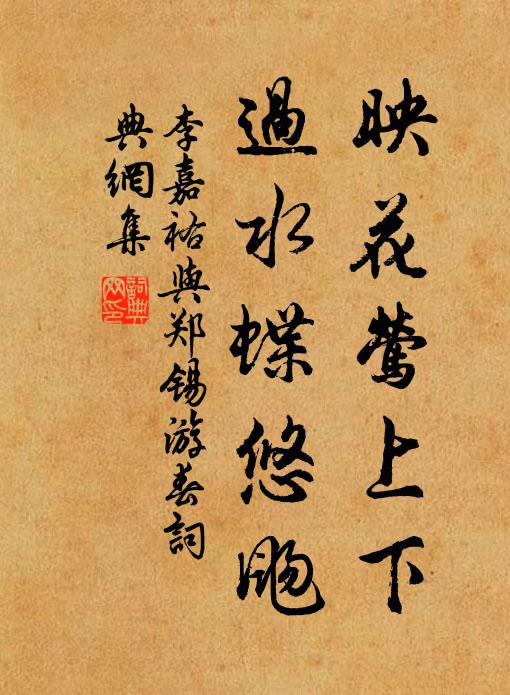 映花莺上下
過水蝶悠飏
李嘉祐與郑锡游春詞
典網集
詞典网印